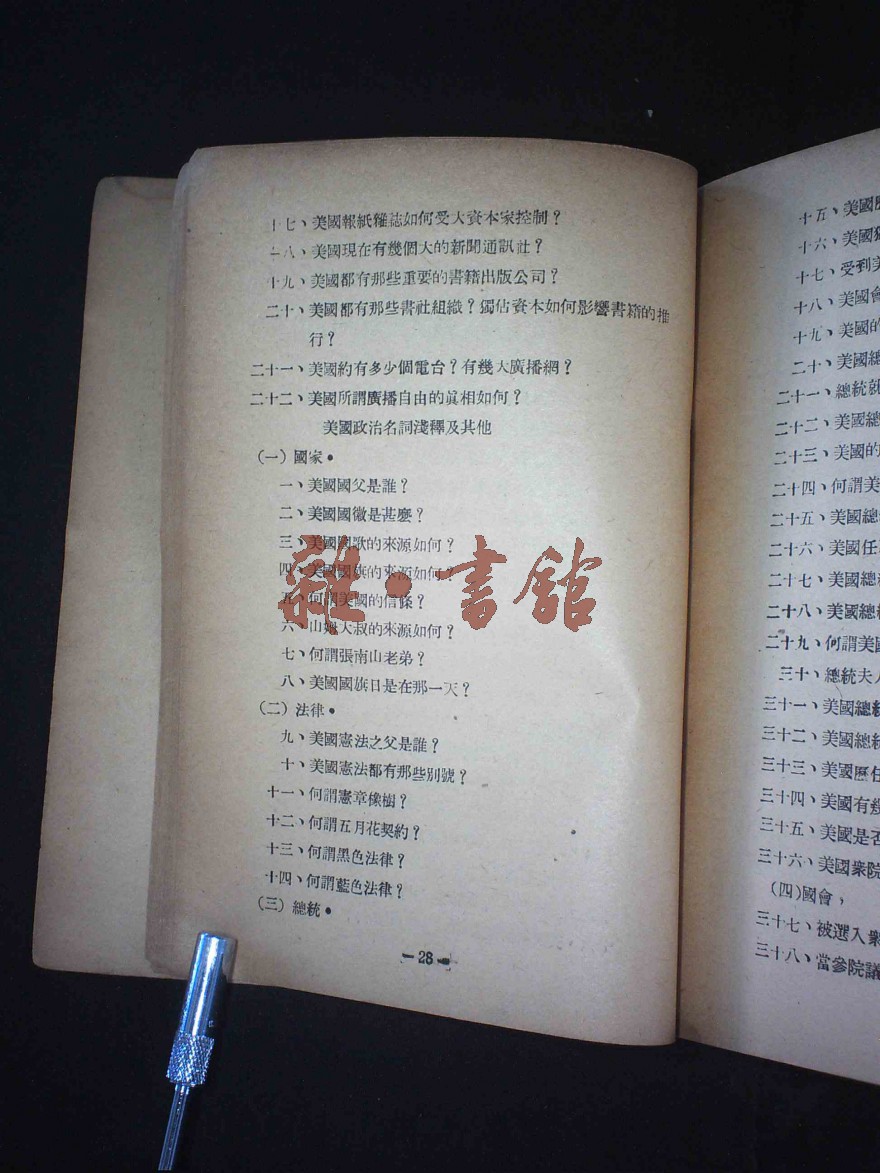 十七、美國報紙雜誌如何受大資本家控制？
十八、美國現在有幾個大的新聞通訊社？
十九、美國都有那些重要的書籍出版公司？
二十、美國都有那些書社組織？獨佔資本如何影響書籍的推
行？
二十一、美國約有多少個電台？有幾大廣播網？
二十二、美國所謂廣播自由的眞相如何？
美國政治名詞淺釋及其他
（一）國家•
一、美國國父是誰？
二、美國國徽是甚麼？
三、美國國歌的來源如何？
四、美國國旗的來源如何？
五、何謂美國的信條？
六、山姆大叔的來源如何？
七、何謂張南山老弟？
八、美國國旗日是在那一天？
（二）法律•
九、美國憲法之父是誰？
十、美國憲法都有那些別號？
十一、何謂憲章橡樹？
十二、何謂五月花契約？
十三、何謂黑色法律？
十四、何謂藍色法律？
（三）總統•
—28—
雜•書館
十五、美國
十六、美國
十七、受到
十八、美國會
十九、美國的
二十、美國總
二十一、總統就
二十二、美國總
二十三、美國的
二十四、何謂美
二十五、美國總
二十六、美國任
二十七、美國總
二十八、美國總
二十九、何謂美
三十、總統夫人
三十一、美國總統
三十二、美國總統
三十三、美國歷任
三十四、美國有幾
三十五、美國是否
三十六、美國衆院
（四）國會，
三十七、被選入衆
三十八、當參院議